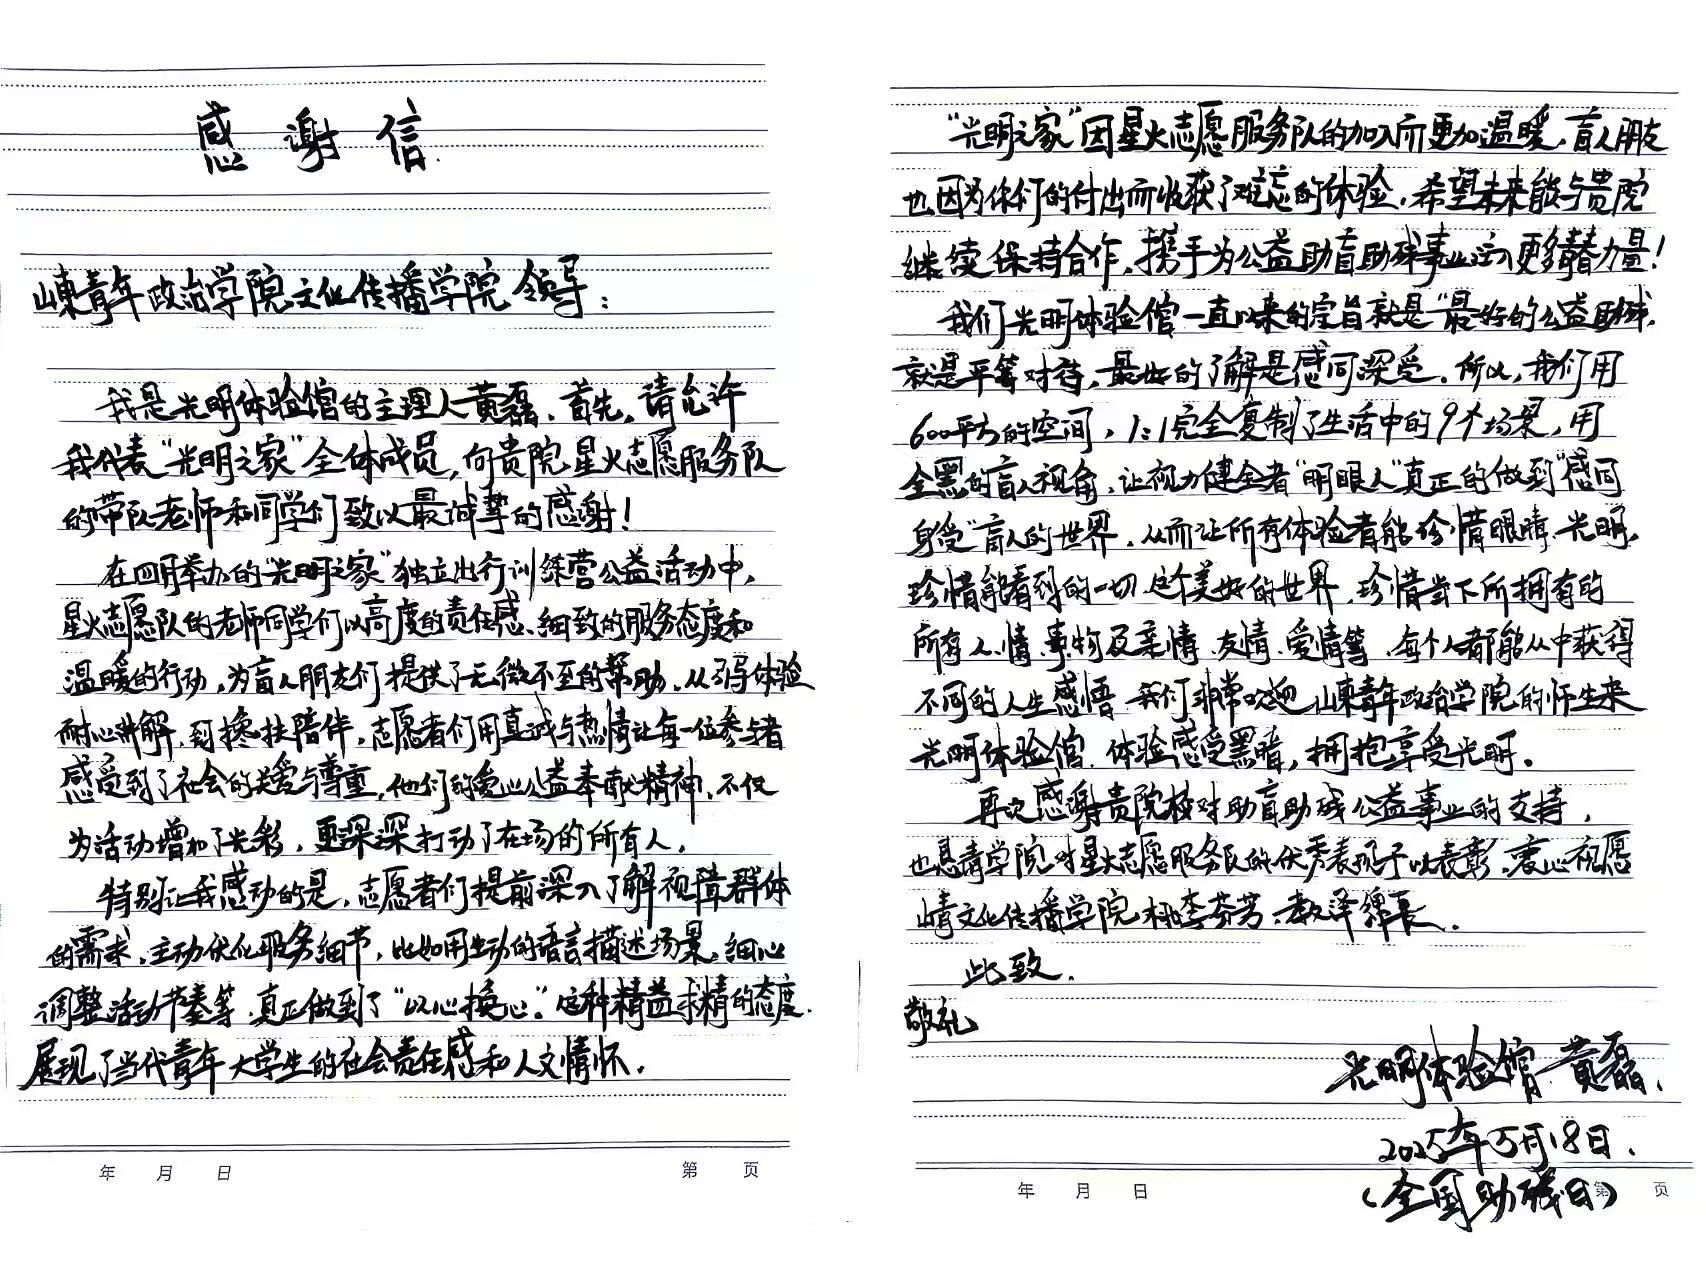 感谢信
山东青年政治学院文化传播学院领导：
我是光明体验馆的主理人黄磊，首先，请允许
我代表“光明之家”全体成员，向贵院星火志愿服务队
的带队老师和同学们致以最诚挚的感谢！
在四月举办的“光明之家”独立出行训练营公益活动中，
星火志愿队的老师同学们以高度的责任感、细致的服务态度和
温暖的行动，为盲人朋友们提供了无微不至的帮助，从引导体验
耐心讲解，到搀扶陪伴，志愿者们用真诚与热情让每一位参与者
感受到了社会的关爱与尊重，他们的爱心公益奉献精神，不仅
为活动增加了光彩，更深深打动了在场的所有人，
特别让我感动的是，志愿者们提前深入了解视障群体
的需求，主动优化服务细节，比如用生动的语言描述场景，细心
调整活动节奏等，真正做到了“以心换心”。这种精益求精的态度，
展现了当代青年大学生的社会责任感和人文情怀，
年 月 日
第 页
“光明之家”因星火志愿服务队的加入而更加温暖，盲人朋友
也因为你们的付出而收获了难忘的体验，希望未来能与贵院
继续保持合作，携手为公益助盲助残事业注入更多青春力量！
我们光明体验馆一直以来的宗旨就是“最好的公益助残，
就是平等对待，最好的了解是感同深受，所以，我们用
600平方的空间，1:1完全复制了生活中的9个场景，用
全黑的盲人视角，让视力健全者“明眼人”真正的做到“感同
身受”盲人的世界，从而让所有体验者能珍惜眼睛、光明，
珍惜能看到的一切，这个美好的世界，珍惜当下所拥有的
所有人、情、事、物及亲情、友情、爱情等，每个人都能从中获得
不同的人生感悟 我们非常欢迎 山东青年政治学院的师生来
光明体验馆，体验感受黑暗，拥抱享受光明。
再次感谢贵院校对助盲助残公益事业的支持，
也恳请学院对星火志愿服务队的优秀表现予以表彰，衷心祝愿
情文化传播学院桃李芬芳，教泽绵长，
此致，
敬礼
光明体验馆 黄磊，
2025年5月18日，
（全国助残日）
年 月 日
第 页